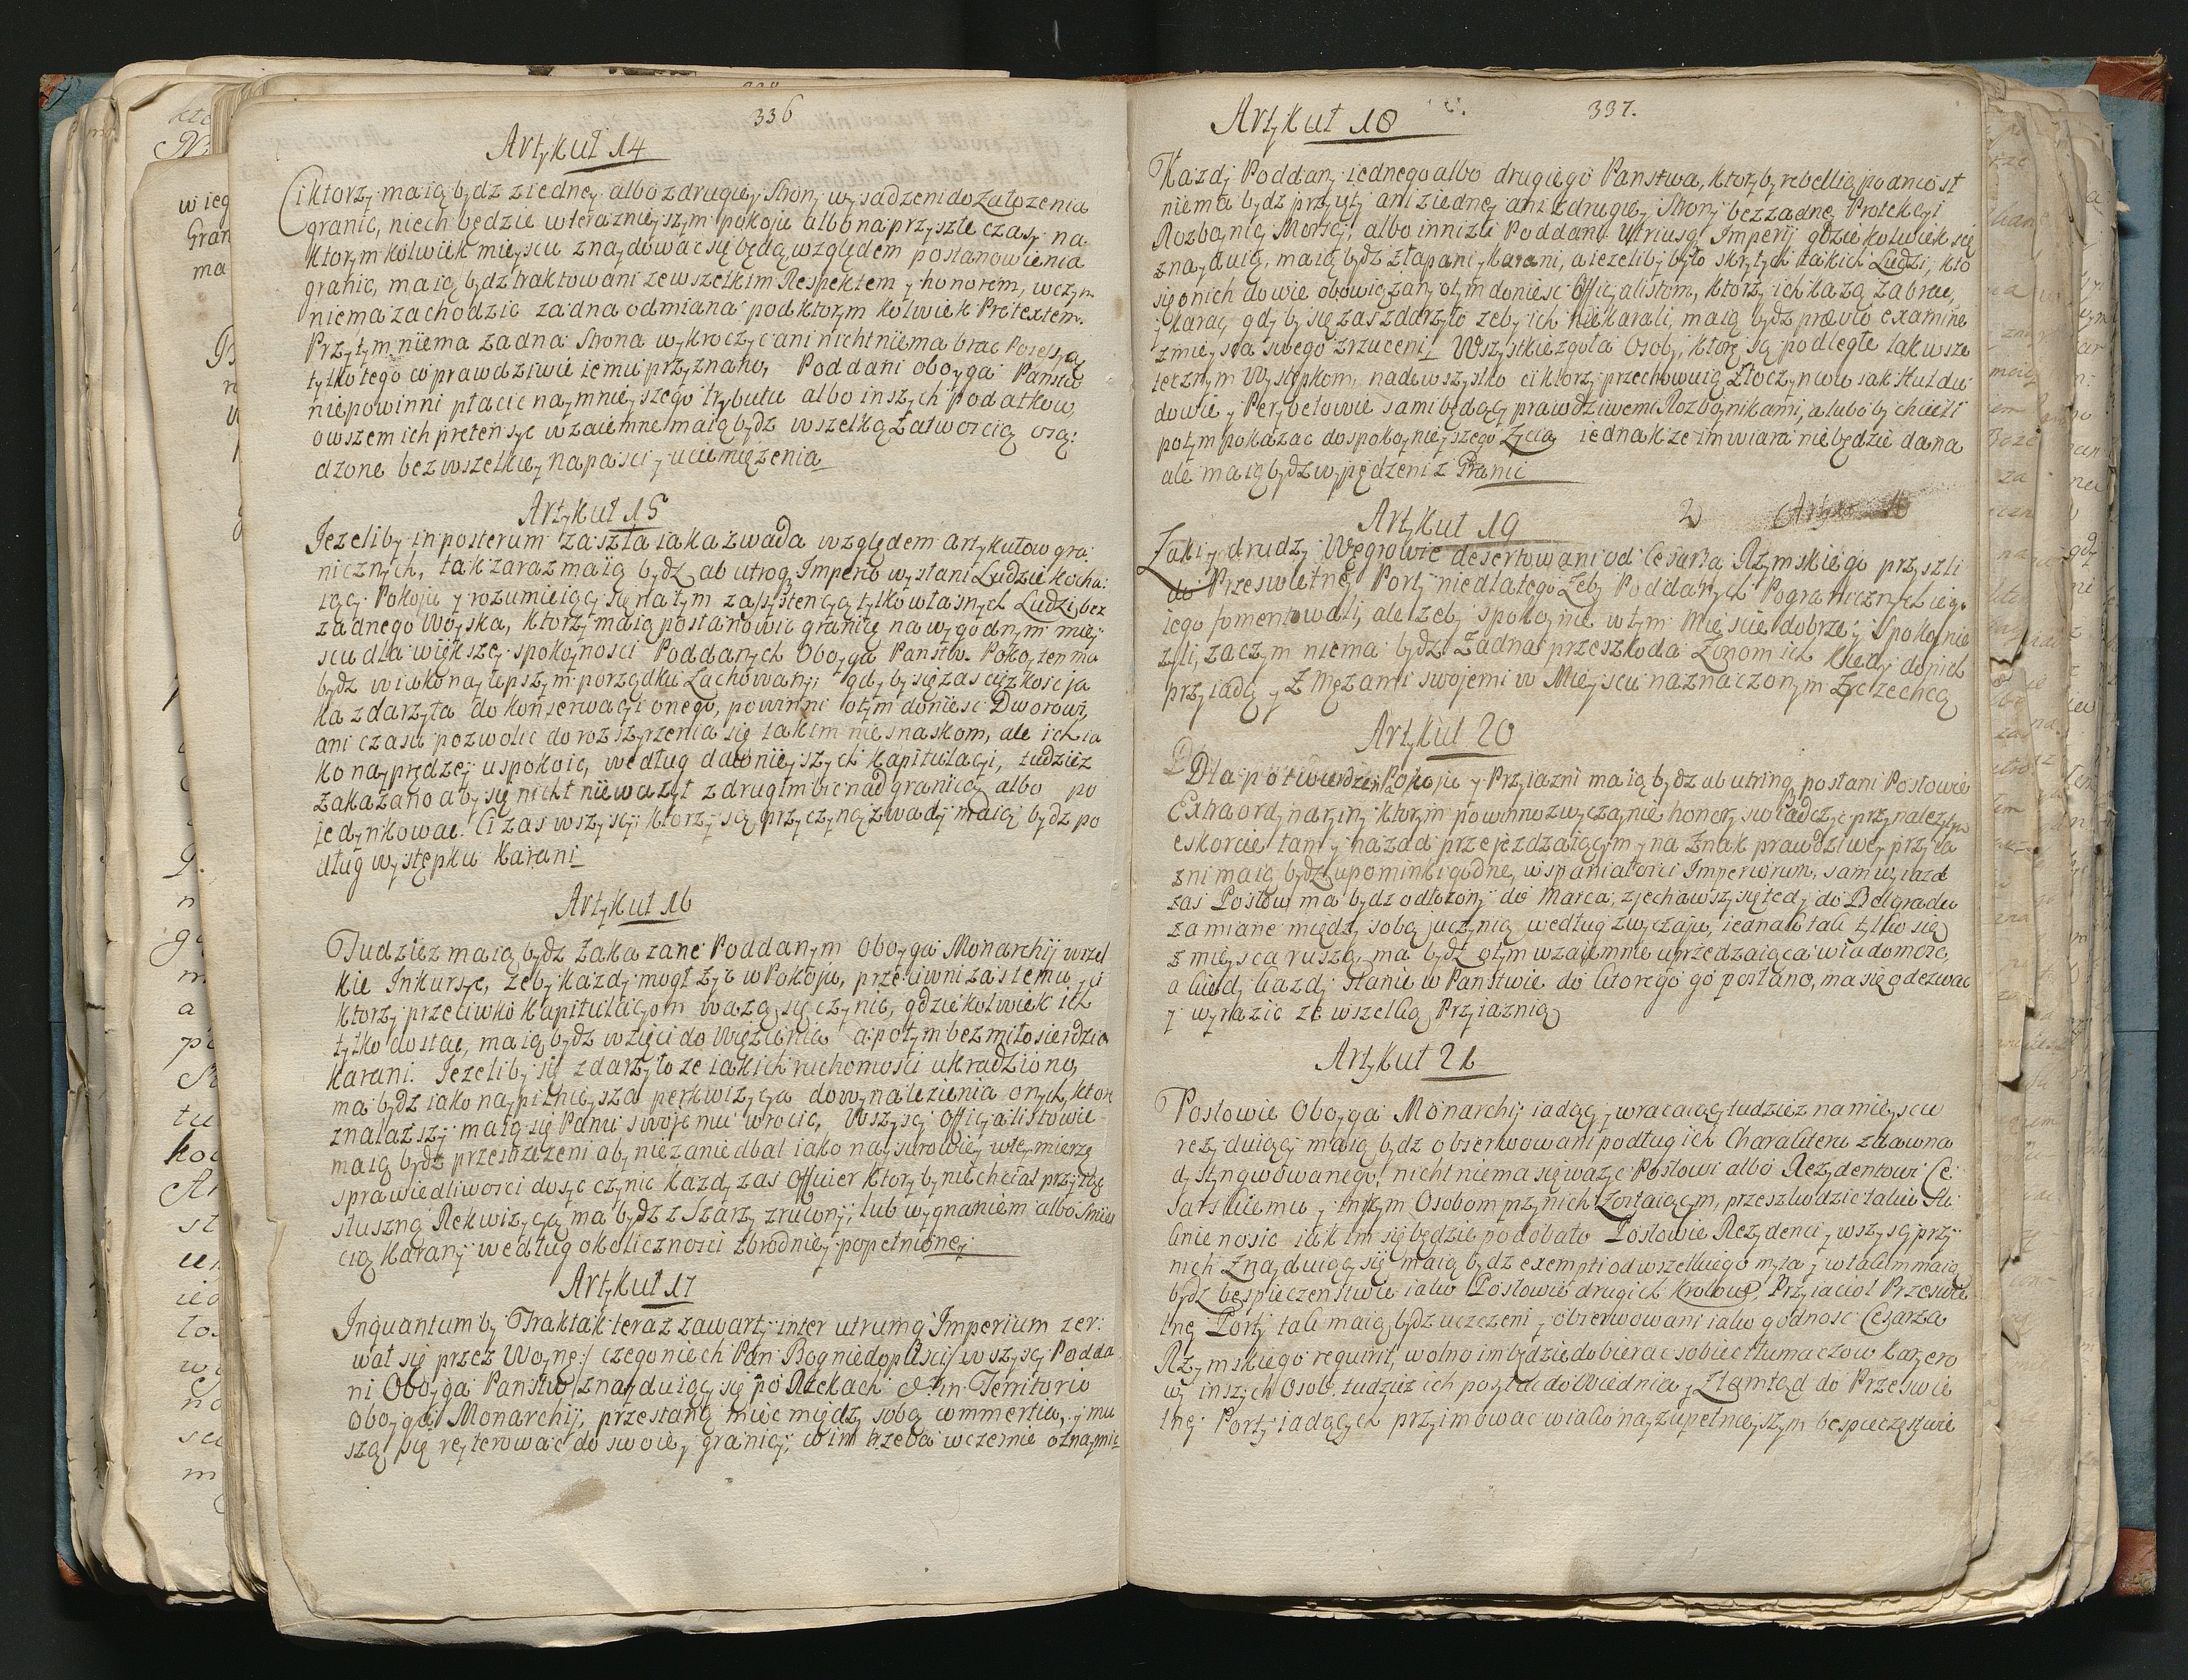 336
Artykuł 14
Ci ktorzy maią bydz z iedney albo z drugiey Strony wysadzeni do założenia
granic, niech będzie w teraznieyszym pokoju albo na przyszłe czasy na
ktorym kolwiek mieyscu znaydować się będą, względem postanowienia
granic, maią bydz traktowani ze wszelkim Respektem y honorem, w czym
niema zachodzic zadna odmiana pod ktorym kolwiek Pretextem.
Przytym niema żadna Strona wykroczyc ani nicht niema brac Posessyą
tylko tego co prawdziwie iemu przyznano, Poddani oboyga Panstw
niepowinni płacic naymnieyszego trybutu albo inszych podatkow
owszem ich pretensye wzaiemne maią bydz wszelką łatwoscią osą:
dzone bez wszelkiey napasci y uciemięzenia
Artykuł 15
Jezeliby inposterum zaszła iaka zwada względem Artykułow gra:
nicznych, tak zaraz maią bydz ab utroq Imperio wysłani Ludzie kocha:
iący Pokoju y rozumieiący się na tym z assystencyą tylko własnych Ludzi, bez
zadnego Woyska, ktorzy maią postanowic granicę na wygodnym miey:
scu dla większey spokoynosci Poddanych Oboyga Panstw. Pokoy ten ma
bydz w iako naylepszym porządku zachowany; gdyby się zas cięzkosc ja
ka zdarzyła do konserwacyi onego, powinni otym doniesc Dworowi,
ani czasu pozwolic do rozszyrzenia się takim niesnaskom, ale ich ia
ko nayprędzey uspokoic, według dawnieyszych Kapitulacyi, tudziez
zakazano aby się nicht nie wazył z drugim bic nad granicą albo po
jedynkowac. Ci zas wszyscy ktorzy są przyczyną zwady maią bydz po
dług występku karani
Artykuł 16
Tudziez maią bydz zakazane Poddanym oboyga Monarchij wszel
kie Inkursye, zeby kazdy mogł życ w Pokoju, przeciwni zas temu, y ci
ktorzy przeciwko Kapitulacyom wazą się czynic, gdziekolwiek ich
tylko dostac, maią bydz wzięci do Więzienia a potym bez miłosierdzia
karani. Jezeliby się zdarzyło ze iakich ruchomosci ukradziono,
ma bydz iako naypilnieysza perkwizycya do wynalezienia onych, ktore
znalazszy maią się Panu swojemu wrocic, Wszyscy Officyalistowie
maią bydz przestrzezeni aby niezaniedbal iako naysurowiey w tey mierze
sprawiedliwosci dosyc czynic kazdy zas Officier ktory by niechciał przyiąc
słuszną Rekwizycyą ma bydz z Szarzy zrucony, lub wygnaniem albo smier
cią karany według okolicznosci zbrodniey popełnioney
Artykuł 17
Inquantumby Traktak teraz zawarty inter utrumq Imperium zer:
wał się przez Woynę:/ czego niech Pan Bog niedopusci/ wszyscy Podda
ni Oboyga Panstw znayduiący się po Rzekach et in Territorio
Oboyga Monarchij, przestaną miec między sobą commertia, y mu
szą się reyterowac do swoiey granicy; co im trzeba wczesnie oznaymic
337.
Artykuł 18
Kazdy Poddany iednego albo drugiego Panstwa, ktoryby rebellią podniosł
niema bydz przyięty ani z iedney ani z drugiey Strony bez zadney Protekcyi
Rozboynicy Morscy, albo inni zli Poddani Utriusq Imperij gdziekolwiek się
znayduią, maią bydz złapani y karani, a iezeliby było skrytych takich Ludzi, kto
się o nich dowie obowiązany otym doniesc Officyalistom, ktorzy ich kazą zabrac,
y karac, gdyby się zas zdarzyło zeby ich niekarali, maią bydz prævio examine
z mieysca swego zrzuceni. Wszystkie zgoła Osoby, ktore są podległe takwsze
tecznym Występkom, nadewszystko ci ktorzy przechowuią złoczyncow iak Haydu
dowie y Perybetowie sami będący prawdziwemi Rozboynikami, a luboby chcieli
potym pokazac do spokoynieyszego zycia iednakze im wiara nie będzie dana
ale maią bydz wypędzeni z Granic
Artykuł 19
Taki y drudzy Węgrowie desertowani od Cesarza Rzymskiego przyszli
do Przeswietney Porty nie dla tego żeby Poddanych Pogranicznych iego
iego fomentowali, ale zeby spokoynie w tym Mieyscie dobrze y Spokoynie
zyli, zaczym niema bydz żadna przeszkoda Zonom ich kiedy do nich
przyiadą y z Męzami swojemi w Mieyscu naznaczonym zyc zechcą
Artykuł 20
Dla potwierdzenia Pokoju y Przyiazni maią bydz ab utrinq posłani Posłowie
Extraordynaryini ktorym powinno zwyczaynie honory swiadczyc przy nalezytey
eskorcie tam y nazad przejezdzaiącym y na znak prawdziwey przyia
zni maią bydz upominki godne, wspaniałosci Imperiorum, sam wyiazd
zas Posłow ma bydz odłozony do Marca, zjechawszy się tedy do Belgradu
zamianę między sobą uczynią według zwyczaju, iednak iak tylko się
z mieysca ruszą, ma bydz otym wzaiemnie uprzedzaiąca wiadomosc,
a kiedy kazdy stanie w Panstwie do ktorego go posłano, ma się odezwac
y wyrazic ze wszelką Przyiaznią
Artykuł 21
Posłowie Oboyga Monarchij iadący y wracaiący tudziez na mieyscu
rezyduiący maią bydz obserwowani podług ich Charakteru zdawna
dystyngwowanego, nicht niema się wazyc Posłowi albo Rezydentowi Ce:
sarskiemu y innym Osobom przy nich zostaiącym, przeszkodzic takie Su
knie nosic iakim się będzie podobało Posłowie Rezydenci y wszyscy przy
nich znayduiący się maią bydz exempti od wszelkiego myta y w takim maią
bydz bespieczenstwie iako Posłowie drugich Krolow, Przyiacioł Przeswie
tney Porty tak maią bydz uczczeni y obserwowani iako godnosc Cesarza
Rzymskiego requirit, wolno im będzie dobierac sobie tłumaczow kazero
wy inszych Osob, tudziez ich poczta do Wiednia y ztamtąd do Przeswie
tney Porty iadących przyimowac w iako nayzupełnieyszym bespieczęstwie